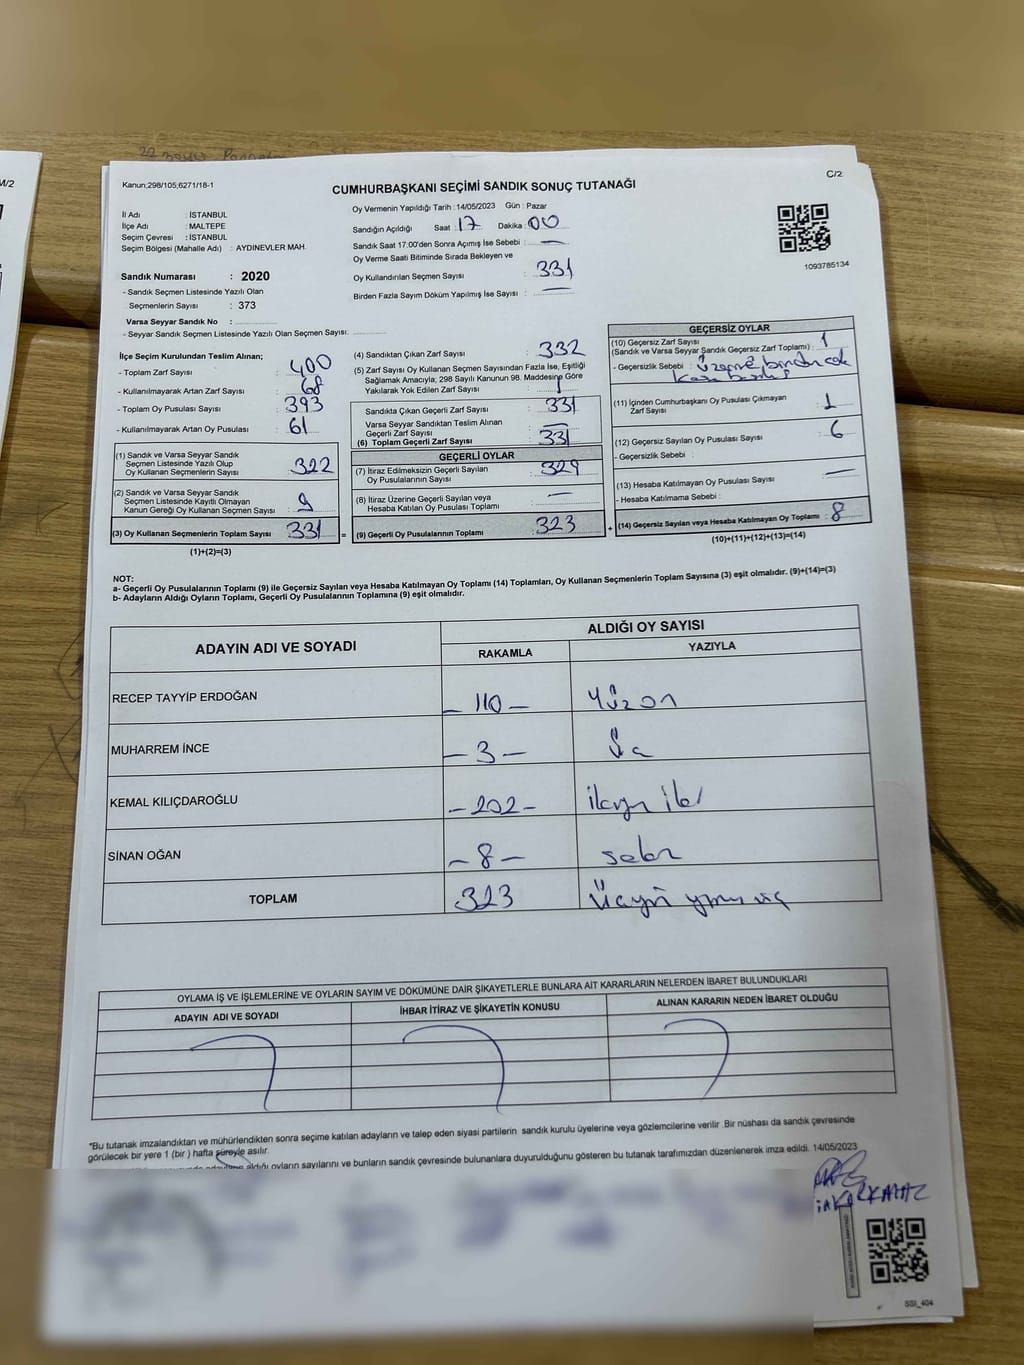 M/2
C/2
Kanun;298/105,6271/18-1
CUMHURBAŞKANI SEÇİMİ SANDIK SONUÇ TUTANAĞI
1093785134
İl Adı : İSTANBUL
İlçe Adı : MALTEPE
Seçim Çevresi : İSTANBUL
Seçim Bölgesi (Mahalle Adı) : AYDINEVLER MAH.
Sandık Numarası : 2020
- Sandık Seçmen Listesinde Yazılı Olan
Seçmenlerin Sayısı : 373
Varsa Seyyar Sandık No :
- Seyyar Sandık Seçmen Listesinde Yazılı Olan Seçmen Sayısı:
Oy Vermenin Yapıldığı Tarih : 14/05/2023 Gün : Pazar
Sandığın Açıldığı Saat : 17 Dakika : 00
Sandık Saat 17:00'den Sonra Açımış İse Sebebi : —
Oy Verme Saati Bitiminde Sırada Bekleyen ve
Oy Kullandırılan Seçmen Sayısı : 331
Birden Fazla Sayım Döküm Yapılmış İse Sayısı : —
İlçe Seçim Kurulundan Teslim Alınan;
- Toplam Zarf Sayısı : 400
- Kullanılmayarak Artan Zarf Sayısı : 68
- Toplam Oy Pusulası Sayısı : 393
- Kullanılmayarak Artan Oy Pusulası : 61
(1) Sandık ve Varsa Seyyar Sandık
Seçmen Listesinde Yazılı Olup
Oy Kullanan Seçmenlerin Sayısı : 322
(2) Sandık ve Varsa Seyyar Sandık
Seçmen Listesinde Kayıtlı Olmayan
Kanun Gereği Oy Kullanan Seçmen Sayısı : 9
(3) Oy Kullanan Seçmenlerin Toplam Sayısı : 331
(1)+(2)=(3)
(4) Sandıktan Çıkan Zarf Sayısı : 332
(5) Zarf Sayısı Oy Kullanan Seçmen Sayısından Fazla İse, Eşitliği
Sağlamak Amacıyla; 298 Sayılı Kanunun 98. Maddesine Göre
Yakılarak Yok Edilen Zarf Sayısı : 1
Sandıkta Çıkan Geçerli Zarf Sayısı : 331
Varsa Seyyar Sandıktan Teslim Alınan
Geçerli Zarf Sayısı : —
(6) Toplam Geçerli Zarf Sayısı : 331
GEÇERLİ OYLAR
(7) İtiraz Edilmeksizin Geçerli Sayılan
Oy Pusulasının Sayısı : 329
(8) İtiraz Üzerine Geçerli Sayılan veya
Hesaba Katılan Oy Pusulası Toplamı : —
(9) Geçerli Oy Pusulalarının Toplamı : 323
GEÇERSİZ OYLAR
(10) Geçersiz Zarf Sayısı : 1
(Sandık ve Varsa Seyyar Sandık Geçersiz Zarf Toplamı)
- Geçersizlik Sebebi :
(11) İçinden Cumhurbaşkanı Oy Pusulası Çıkmayan
Zarf Sayısı : 1
(12) Geçersiz Sayılan Oy Pusulası Sayısı : 6
- Geçersizlik Sebebi :
(13) Hesaba Katılmayan Oy Pusulası Sayısı : —
- Hesaba Katılmama Sebebi :
(14) Geçersiz Sayılan veya Hesaba Katılmayan Oy Toplamı : 8
(10)+(11)+(12)+(13)=(14)
NOT:
a- Geçerli Oy Pusulalarının Toplamı (9) ile Geçersiz Sayılan veya Hesaba Katılmayan Oy Toplamı (14) Toplamları, Oy Kullanan Seçmenlerin Toplam Sayısına (3) eşit olmalıdır. (9)+(14)=(3)
b- Adayların Aldığı Oyların Toplamı, Geçerli Oy Pusulalarının Toplamına (9) eşit olmalıdır.
ADAYIN ADI VE SOYADI
ALDIĞI OY SAYISI
RAKAMLA YAZIYLA
RECEP TAYYİP ERDOĞAN - 110 - Yüzon
MUHARREM İNCE - 3 - Üç
KEMAL KILIÇDAROĞLU - 202 - ikiyüz iki
SİNAN OĞAN - 8 - sekiz
TOPLAM 323 Üçyüz yirmi üç
OYLAMA İŞ VE İŞLEMLERİNE VE OYLARIN SAYIM VE DÖKÜMÜNE DAİR ŞİKAYETLERLE BUNLARA AİT KARARLARIN NELERDEN İBARET BULUNDUKLARI
ADAYIN ADI VE SOYADI İHBAR İTİRAZ VE ŞİKAYETİN KONUSU ALINAN KARARIN NEDEN İBARET OLDUĞU
*Bu tutanak imzalandıktan ve mühürlendikten sonra seçime katılan adayların ve talep eden siyasi partilerin sandık kurulu üyelerine veya gözlemcilerine verilir .Bir nüshası da sandık çevresinde
görülecek bir yere 1 (bir ) hafta süreyle asılır.
aldığı oyların sayılarını ve bunların sandık çevresinde bulunanlara duyurulduğunu gösteren bu tutanak tarafımızdan düzenlenerek imza edildi. 14/05/2023
SSI_404